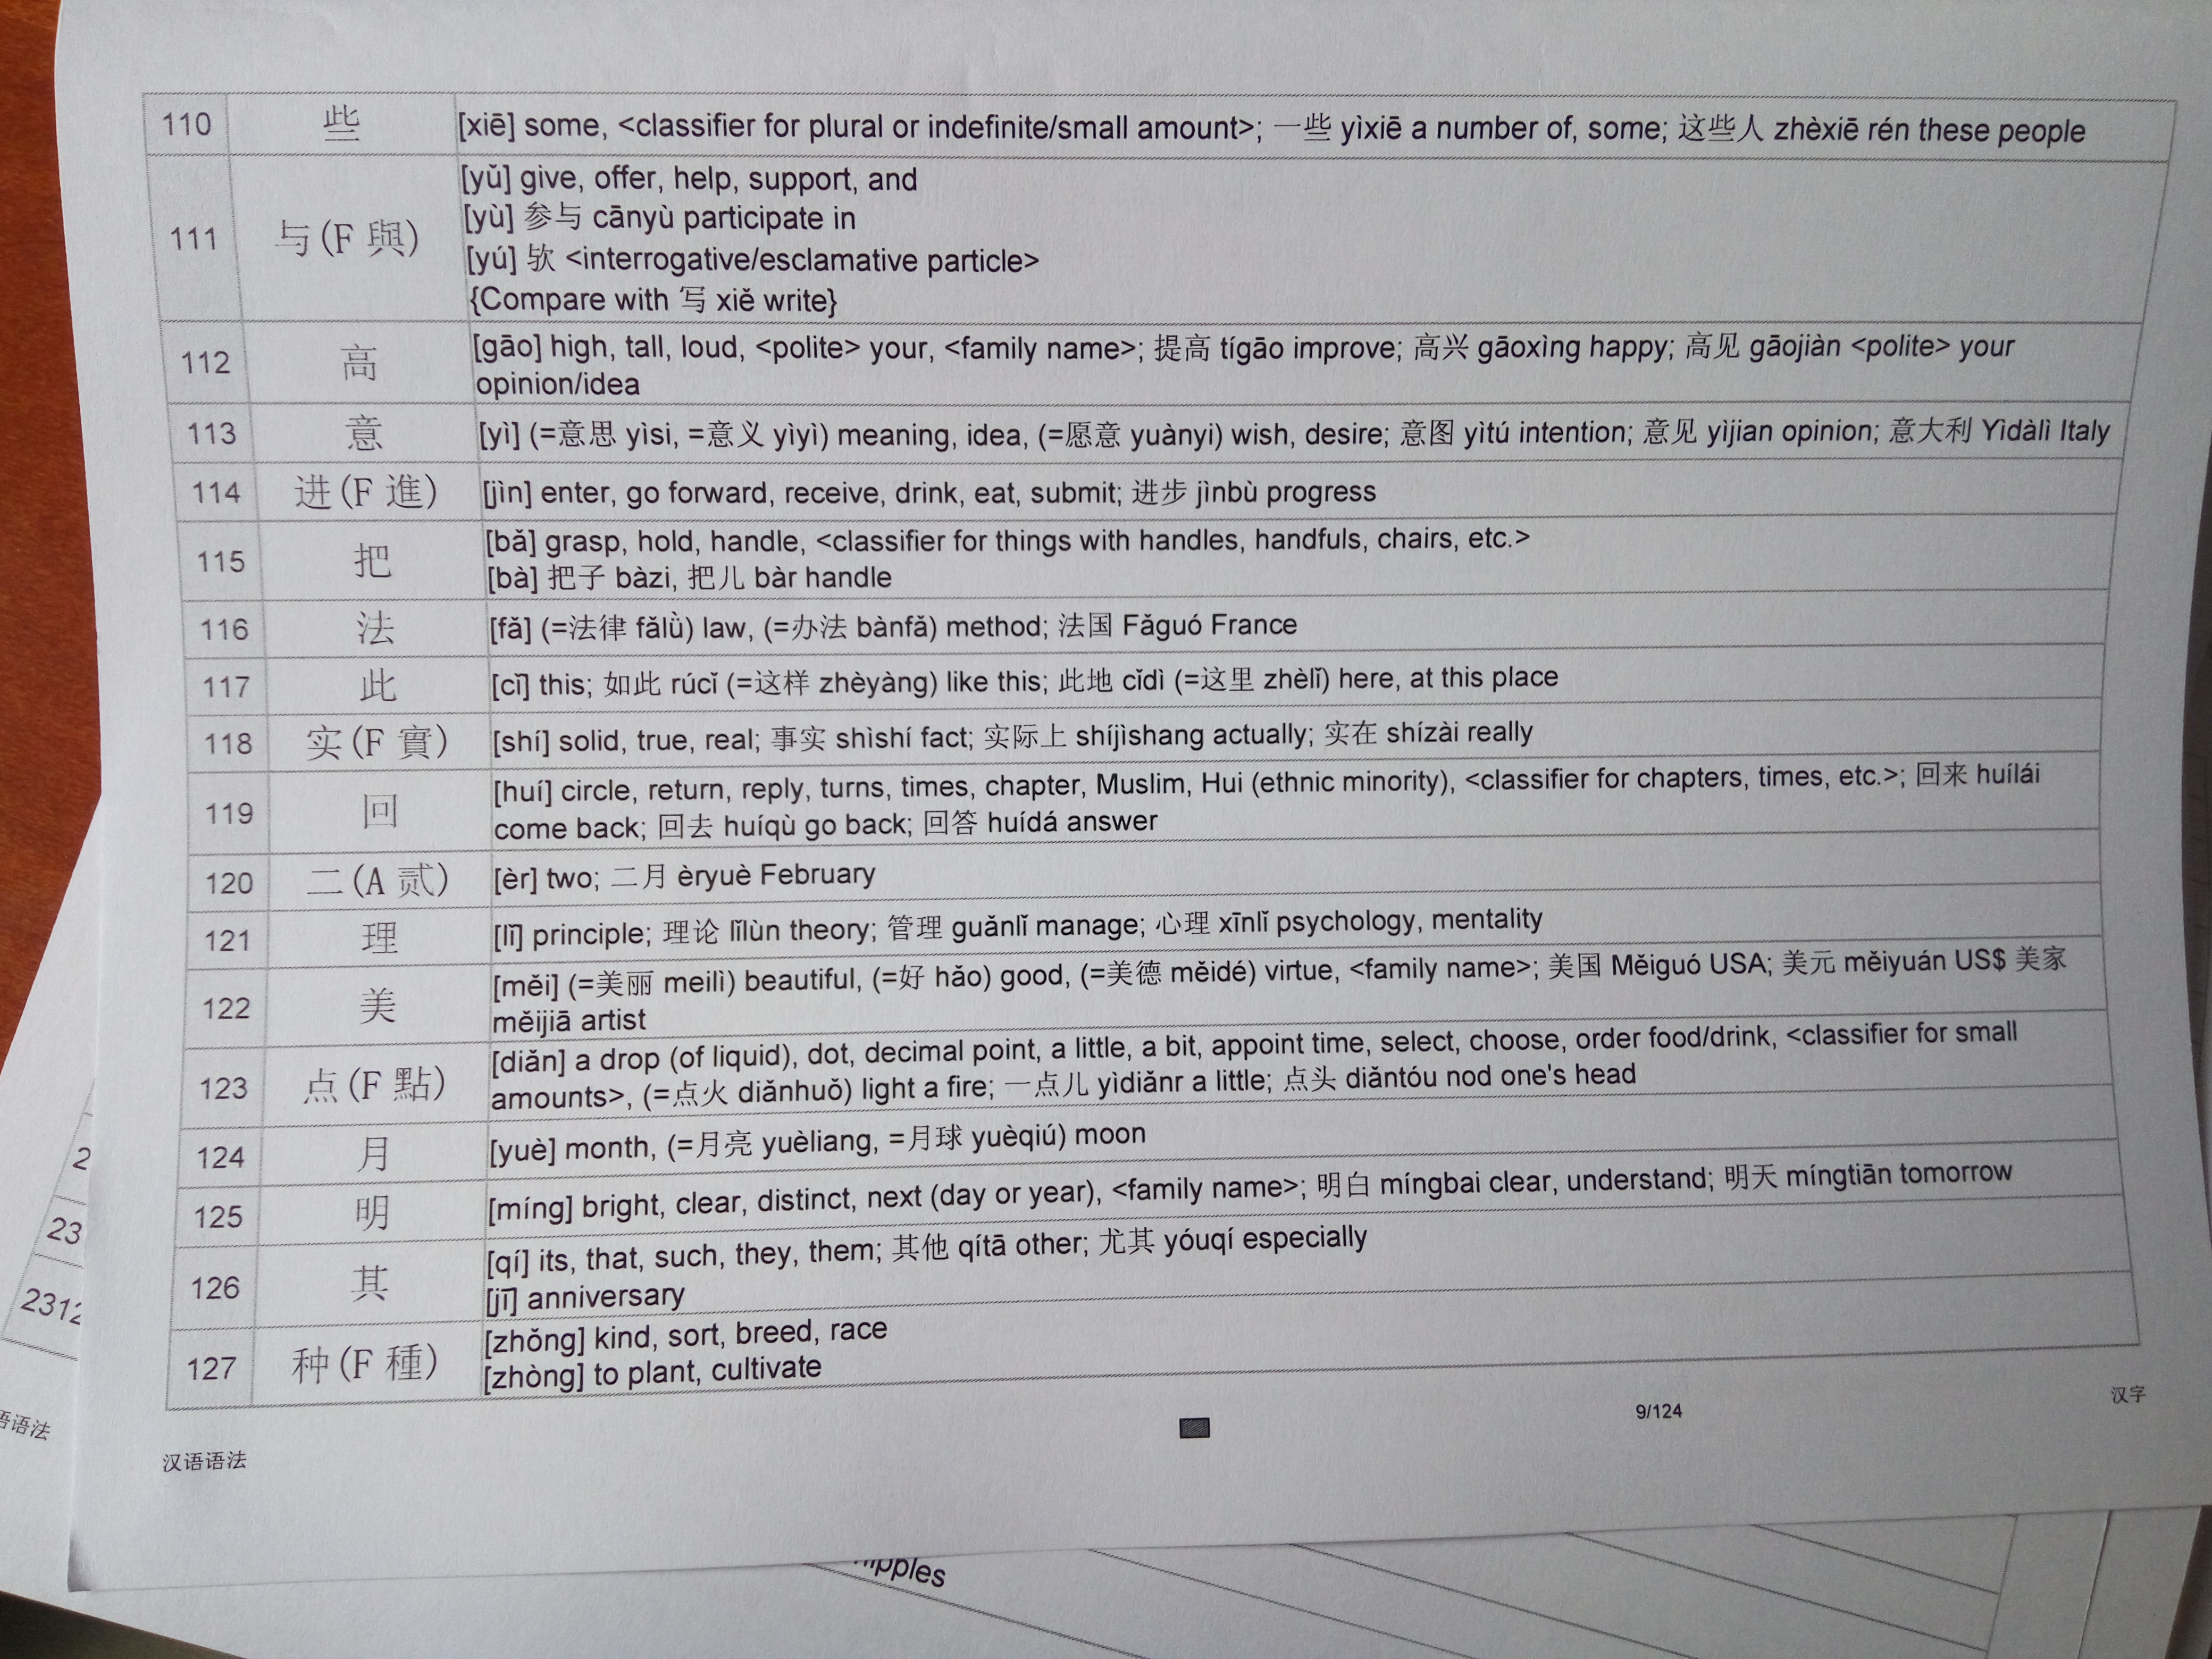 110 些 [xiē] some, <classifier for plural or indefinite/small amount>; 一些 yìxiē a number of, some; 这些人 zhèxiē rén these people
111 与(F 與) [yǔ] give, offer, help, support, and
[yù] 参与 cānyù participate in
[yú] 欤 <interrogative/esclamative particle>
{Compare with 写 xiě write}
112 高 [gāo] high, tall, loud, <polite> your, <family name>; 提高 tígāo improve; 高兴 gāoxìng happy; 高见 gāojiàn <polite> your
opinion/idea
113 意 [yì] (=意思 yìsi, =意义 yìyì) meaning, idea, (=愿意 yuànyi) wish, desire; 意图 yìtú intention; 意见 yìjian opinion; 意大利 Yìdàlì Italy
114 进(F 進) [jìn] enter, go forward, receive, drink, eat, submit; 进步 jìnbù progress
115 把 [bǎ] grasp, hold, handle, <classifier for things with handles, handfuls, chairs, etc.>
[bà] 把子 bàzi, 把儿 bàr handle
116 法 [fǎ] (=法律 fǎlǜ) law, (=办法 bànfǎ) method; 法国 Fǎguó France
117 此 [cǐ] this; 如此 rúcǐ (=这样 zhèyàng) like this; 此地 cǐdì (=这里 zhèlǐ) here, at this place
118 实(F 實) [shí] solid, true, real; 事实 shìshí fact; 实际上 shíjìshang actually; 实在 shízài really
119 回 [huí] circle, return, reply, turns, times, chapter, Muslim, Hui (ethnic minority), <classifier for chapters, times, etc.>; 回来 huílái
come back; 回去 huíqù go back; 回答 huídá answer
120 二(A 贰) [èr] two; 二月 èryuè February
121 理 [lǐ] principle; 理论 lǐlùn theory; 管理 guǎnlǐ manage; 心理 xīnlǐ psychology, mentality
122 美 [měi] (=美丽 meilì) beautiful, (=好 hǎo) good, (=美德 měidé) virtue, <family name>; 美国 Měiguó USA; 美元 měiyuán US$ 美家
měijiā artist
123 点(F 點) [diǎn] a drop (of liquid), dot, decimal point, a little, a bit, appoint time, select, choose, order food/drink, <classifier for small
amounts>, (=点火 diǎnhuǒ) light a fire; 一点儿 yìdiǎnr a little; 点头 diǎntóu nod one's head
124 月 [yuè] month, (=月亮 yuèliang, =月球 yuèqiú) moon
125 明 [míng] bright, clear, distinct, next (day or year), <family name>; 明白 míngbai clear, understand; 明天 míngtiān tomorrow
126 其 [qí] its, that, such, they, them; 其他 qítā other; 尤其 yóuqí especially
[jī] anniversary
127 种(F 種) [zhǒng] kind, sort, breed, race
[zhòng] to plant, cultivate
汉语语法 9/124 汉字
2
23
2312
语语法